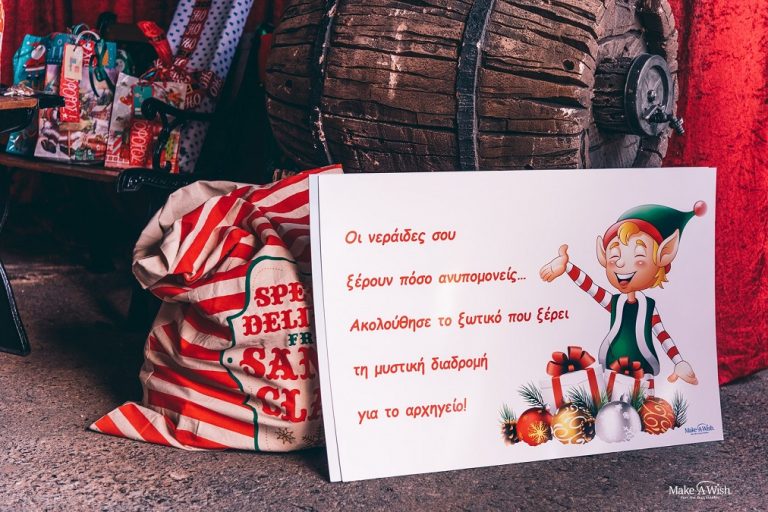 Οι νεράιδες σου
ξέρουν πόσο ανυπομονείς...
Ακολούθησε το ξωτικό που ξέρει
τη μυστική διαδρομή
για το αρχηγείο!
Make-A-Wish.
SPE
DELI
FR
SAN
CLA
Make-A-Wish.